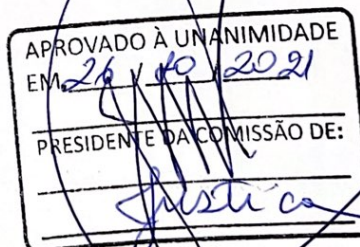 APROVADO À UNANIMIDADE
EM 26 / 10 / 2021
PRESIDENTE DA COMISSÃO DE:
Justiça